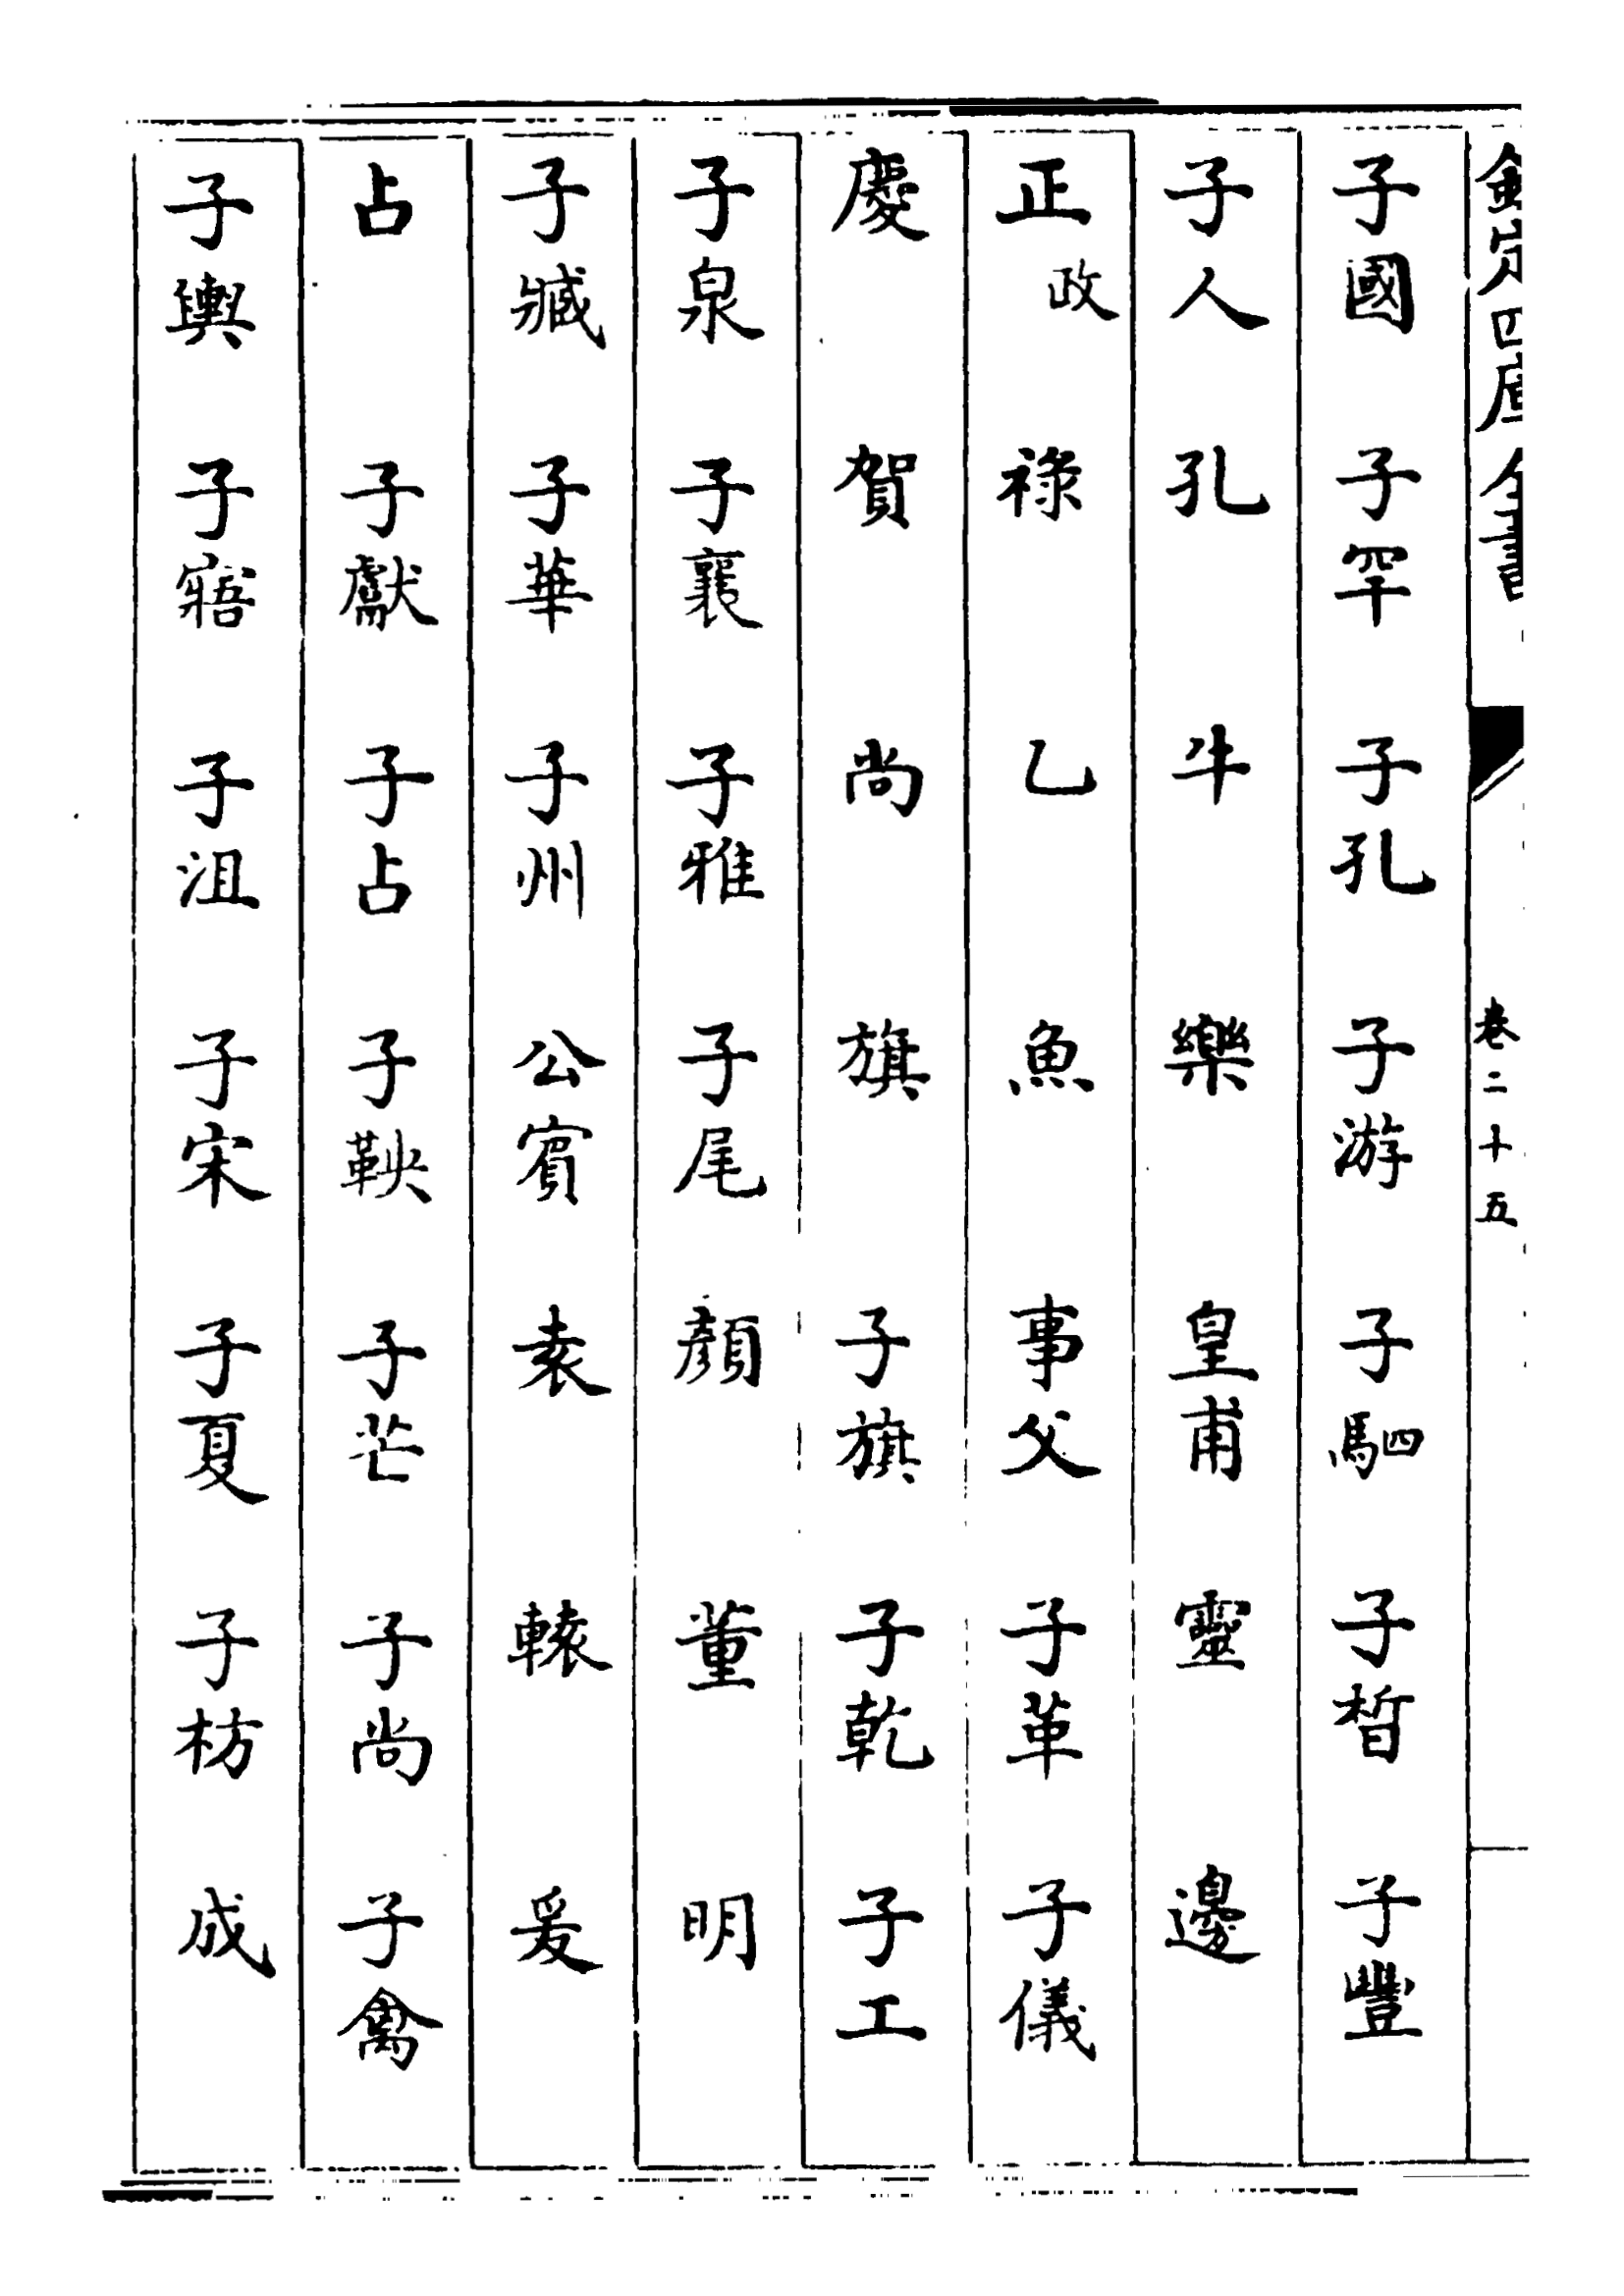 欽定四庫全書
卷二十五
子國 子罕 子孔 子游 子駟 子晳 子豐
子人 孔 牛 樂 皇甫 靈 邊
正政 祿 乙 魚 事父 子革 子儀
慶 賀 尚 旗 子旗 子乾 子工
子泉 子襄 子雅 子尾 顏 董 明
子臧 子華 子州 公賓 袁 轅 爰
占 子獻 子占 子鞅 子芒 子尚 子禽
子輿 子寤 子沮 子宋 子夏 子枋 成